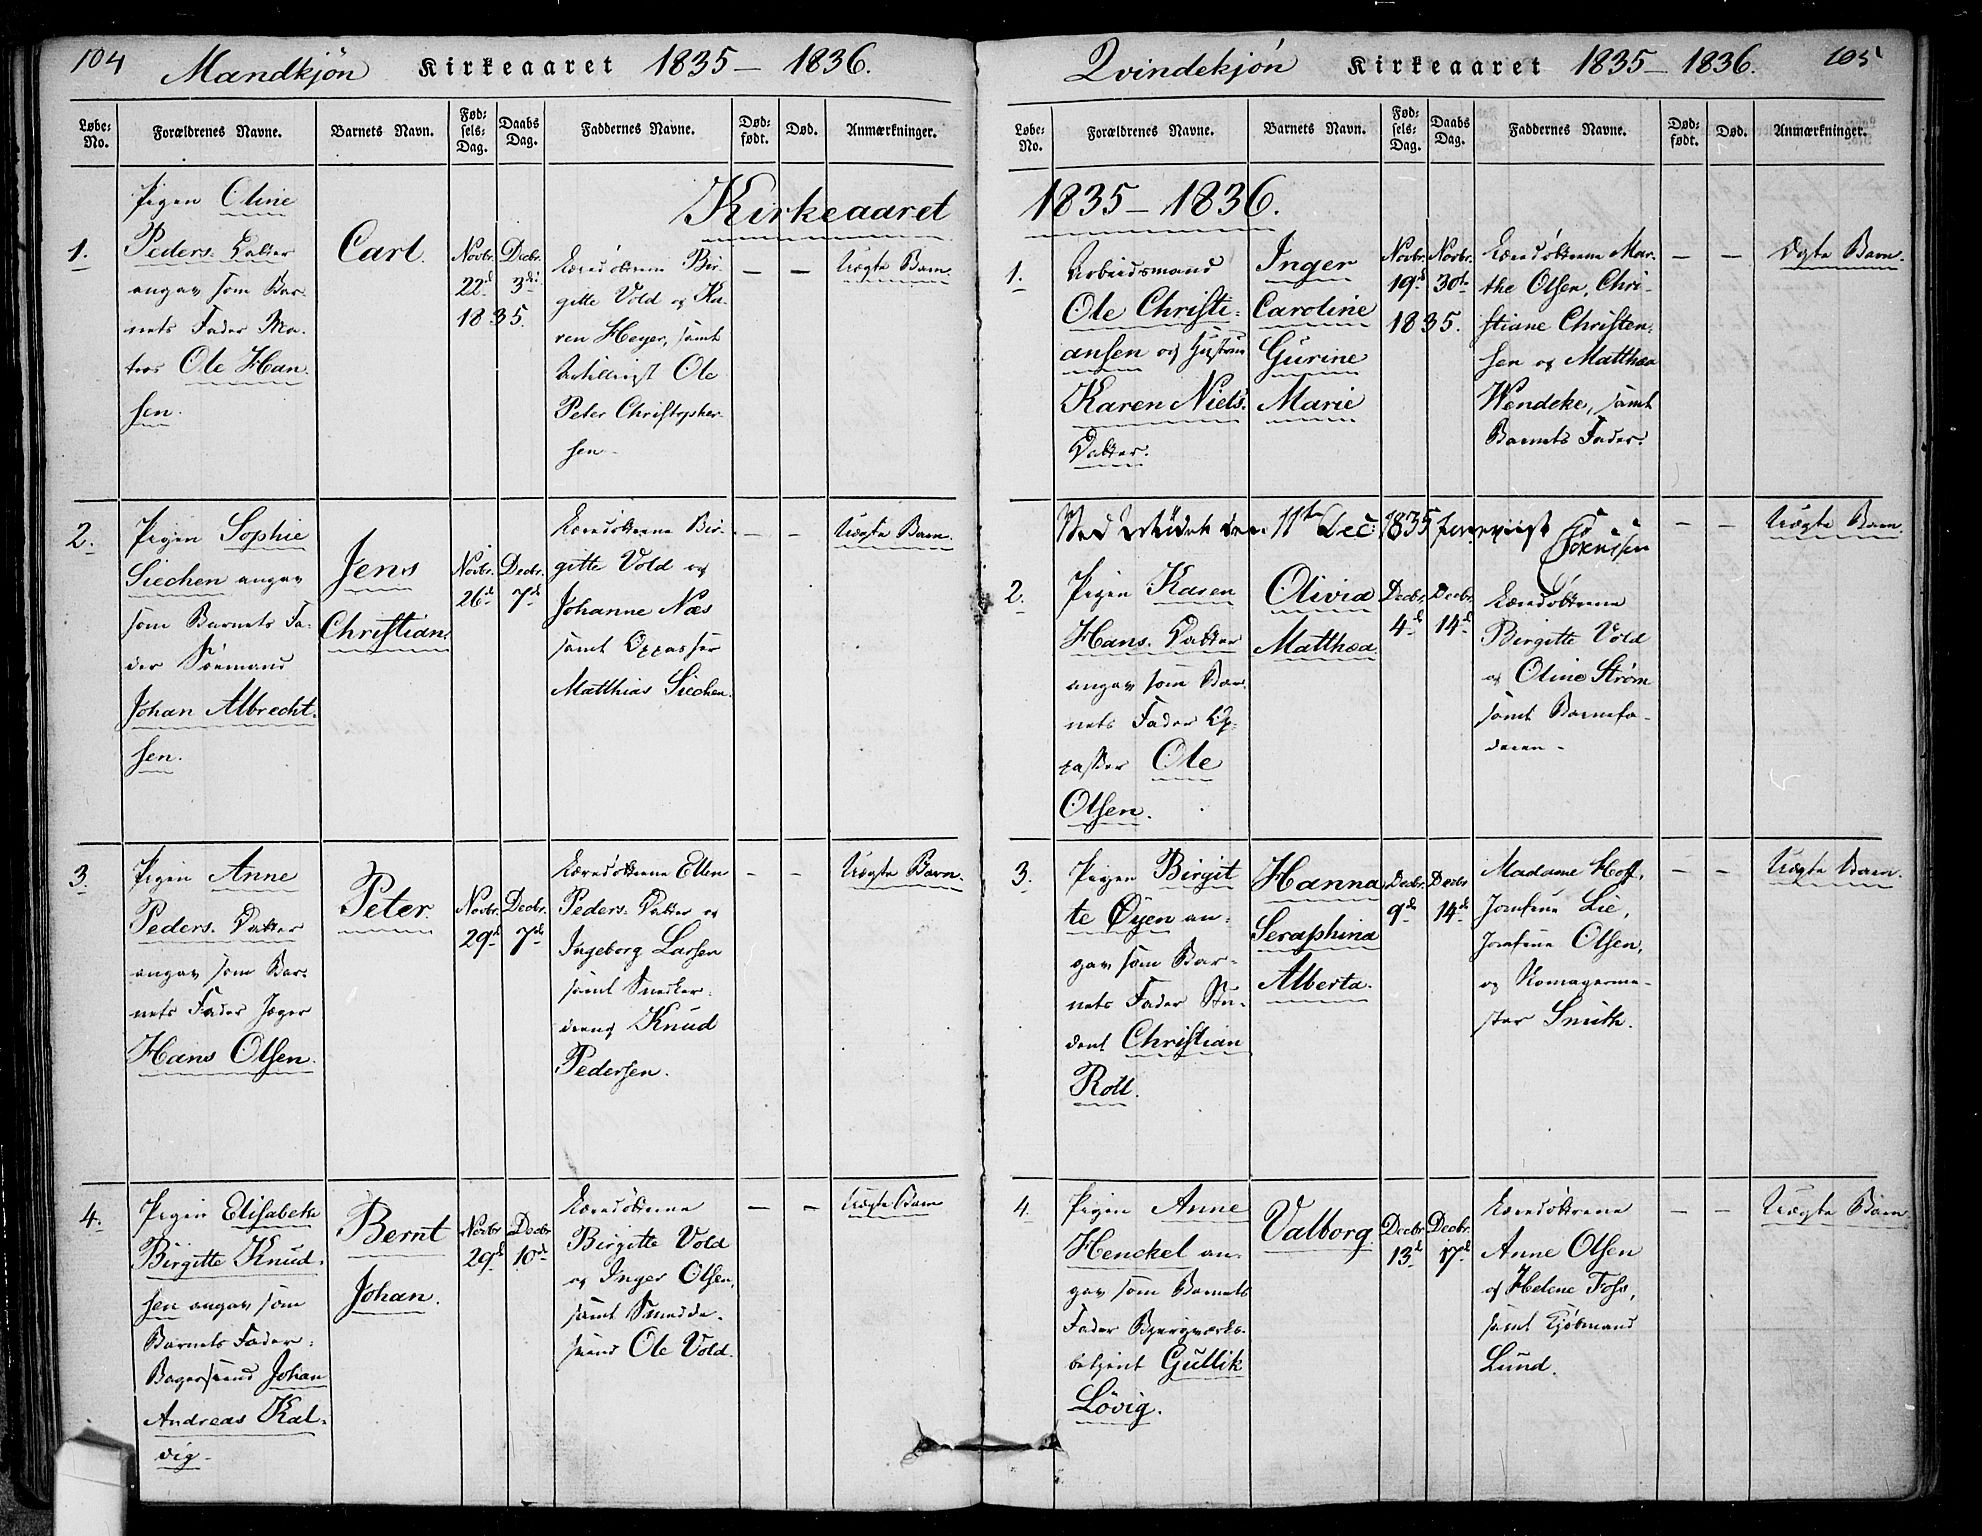 104
Mandkjön Kirkeaaret 1835 – 1836.
Løbe-No. Forældrenes Navne. Barnets Navn. Fødsels-Dag. Daabs Dag. Faddernes Navne. Død-født. Død. Anmærkninger.
Kirkeaaret
1.
Pigen Oline
Peders. Datter
angav som Bar-
nets Fader Ma-
tros Ole Han-
sen.
Carl.
Novbr.
22d
Decbr.
3die
1835.
Læredøttrene Bir-
gitte Vold og Ka-
ren Heyer, samt
Ole
Peter Christopher-
sen.
– –
Uægte Barn.
2.
Pigen Sophie
Siechen angav
som Barnets Fa-
der Sömand
Johan Albrecht-
sen.
Jens
Christian
Novbr.
26d
Decbr.
7d
Læredøttrene Bir-
gitte Vold og
Johanne Næs
samt Oppasser
Matthias Siechen.
– –
Uægte Barn.
3.
Pigen Anne
Peders. Datter
angav som Bar-
nets Fader Jæger
Hans Olsen.
Peter.
Novbr.
29d
Decbr.
7d
Læredøttrene Ellen
Peders. Datter og
Ingeborg Larsen
samt Snedker-
dreng Knud
Pedersen.
– –
Uægte Barn.
4.
Pigen Elisabeth
Birgitte Knud-
sen angav som
Barnets Fader
Bagersvend Johan
Andreas Kal-
vig.
Bernt
Johan.
Novbr.
29d
Decbr.
10d
Læredøttrene
Birgitte Vold
og Inger Olsen,
samt Smedde-
svend Ole Vold.
– –
Uægte Barn
105
Qvindekjön Kirkeaaret 1835 – 1836.
Løbe-No. Forældrenes Navne. Barnets Navn. Fødsels-Dag. Daabs Dag. Faddernes Navne. Død-født. Død. Anmærkninger.
1835 – 1836.
1.
Arbeidsmand
Ole Christi-
ansen og Hustrue
Karen Niels.
Datter.
Inger
Caroline
Gurine
Marie
Novbr.
19d
Novbr.
30te
1835.
Læredøttrene Mar-
the Olsen, Chri-
stiane Christen-
sen og Matthea
Wendeke, samt
Barnets Fader.
– –
Ægte Barn.
Ved den 11te Dec: 1835
2.
Pigen Karen
Hans. Datter
angav som Bar-
nets Fader Op-
passer Ole
Olsen.
Olivia
Matthea.
Decbr.
4d
Decbr.
14d
Læredøttrene
Birgitte Vold
og Oline Ström
samt Barnefa-
deren.
– –
Uægte Barn
3.
Pigen Birgit
te Öyen an-
gav som Bar-
nets Fader Stu-
dent Christian
Roll.
Hanna
Seraphina
Alberta.
Decbr.
9d
Decbr.
14d
Madame Hoff,
Jomfrue Lie,
Jomfrue Olsen,
og Skomagerme-
ster Smith.
– –
Uægte Barn.
4.
Pigen Anne
Henckel an-
gav som Barnets
Fader Bjergværks-
betjent Gullik
Lövig.
Valborg.
Decbr.
13d
Decbr.
17d
Læredøttrene
Anne Olsen
og Helene Foss,
samt Kjöbmand
Lund.
– –
Uægte Barn